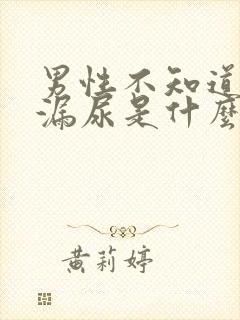 男性不知道
漏尿是什麼
黄莉婷